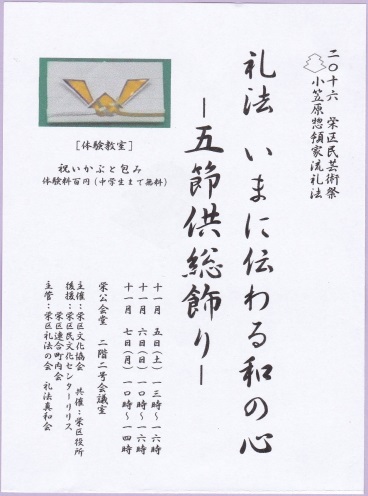 二〇十六 栄区民芸術祭
小笠原惣領家流礼法
礼法 いまに伝わる和の心
―五節供総飾り―
[体験教室]
祝いかぶと包み
体験料百円(中学生まで無料)
十一月 五日(土) 一三時~一六時
十一月 六日(日) 一〇時~一六時
十一月 七日(月) 一〇時~一四時
栄公会堂 二階二号会議室
主催:栄区文化協会 共催:栄区役所
後援:栄区民文化センターリリス
栄区連合町内会
主管:栄区礼法の会 礼法真和会